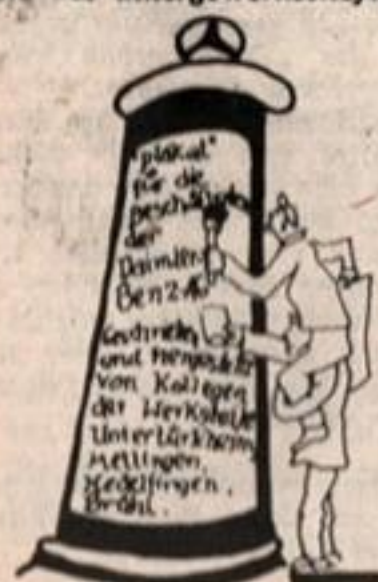 "plakat"
für die
Beschäftigten
der
Daimler
Benz AG
Geschrieben
und hergestellt
von Kollegen
der Werksteile
Untertürkheim,
Mettingen,
Hedelfingen,
Brühl.